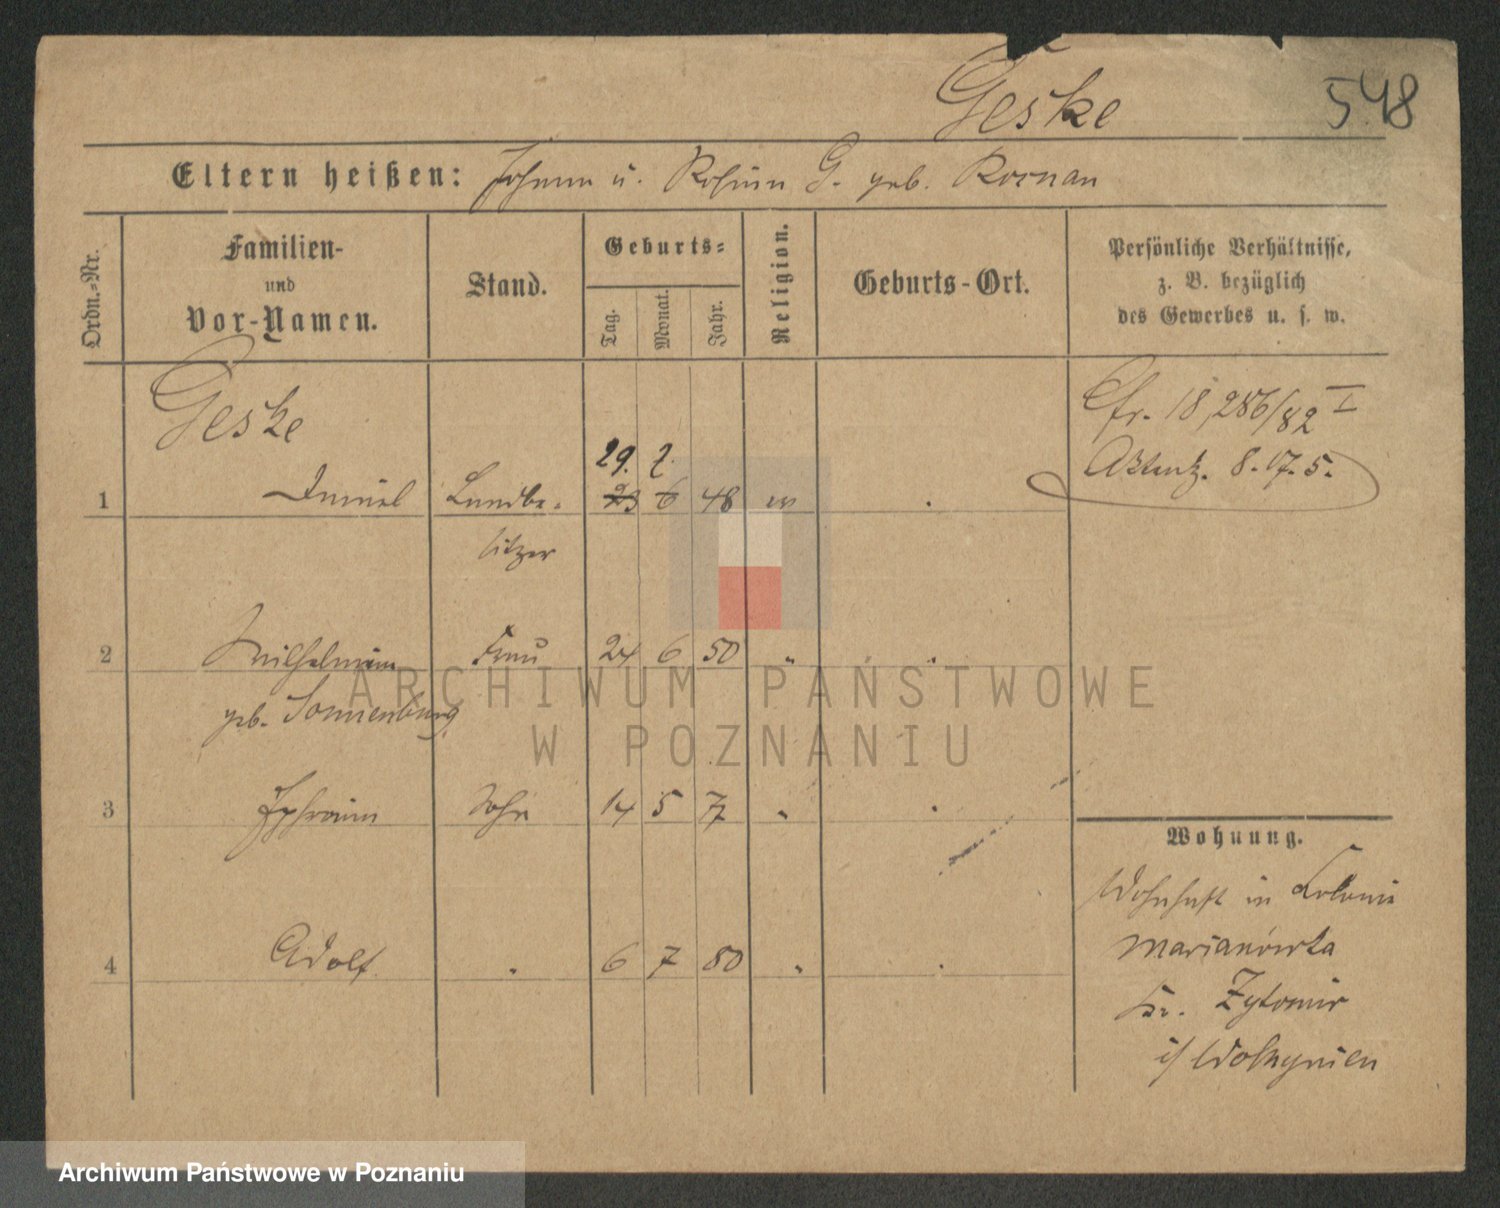 Geske 548
Eltern heißen: Johann u. Rosina G. geb. Roenan
Ordn.-Nr.
Familien-
und
Vor-Namen.
Stand.
Geburts-
Tag.
Monat.
Jahr.
Religion.
Geburts-Ort.
Persönliche Verhältnisse,
z. B. bezüglich
des Gewerbes u. s. w.
Geske
Cfr. 18,286/82 I
Aktenz. 8.17.5.
29. 7.
1 Daniel Landbe- 23 6 48 ev .
sitzer
2 Wilhelmine Frau 24 6 50 " "
geb. Sonnenburg
3 Ephraim Sohn 14 5 77 " "
4 Adolf " 6 7 80 " "
Wohnung.
Wohnhaft in Colonie
Marianówka
Kr. Zytomir
i/ Wolhynien
ARCHIWUM PAŃSTWOWE
W POZNANIU
Archiwum Państwowe w Poznaniu